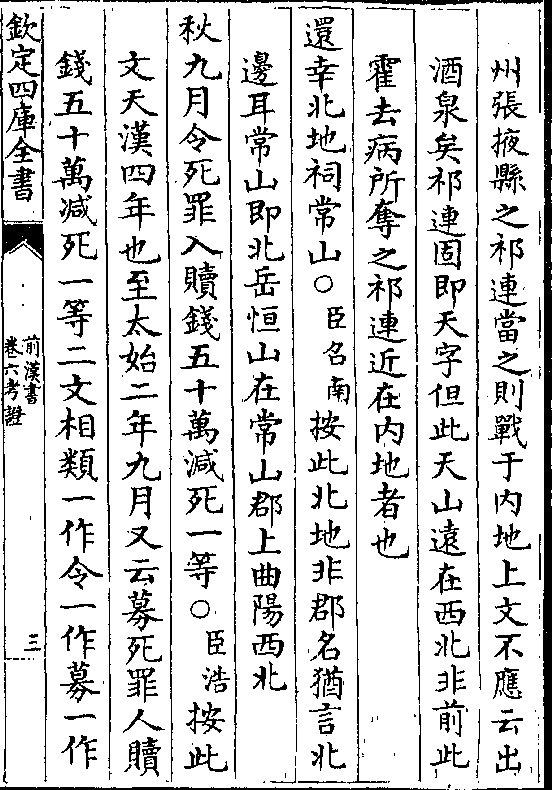 州張掖縣之祁連當之則戰于内地上文不應云出
酒泉矣祁連固即天字但此天山遠在西北非前此
霍去病所奪之祁連近在内地者也
還幸北地祠常山○臣召南按此北地非郡名猶言北
邊耳常山即北岳恒山在常山郡上曲陽西北
秋九月令死罪入贖錢五十萬減死一等○臣浩按此
文天漢四年也至太始二年九月又云募死罪人贖
錢五十萬減死一等二文相類一作令一作募一作
欽定四庫全書
前漢書
卷六考證
三